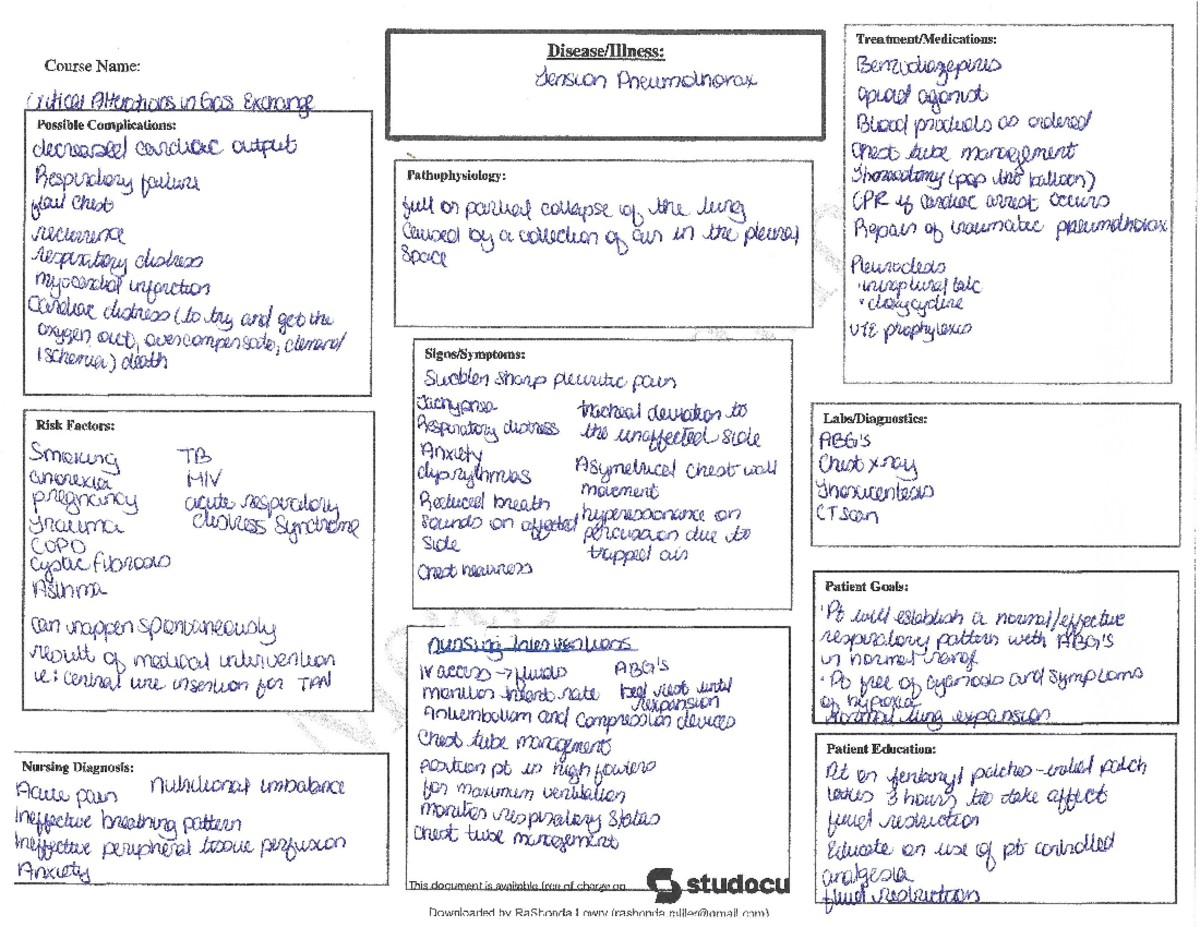 Course Name:
Critical Alterations in Gas Exchange
Disease/Illness:
Tension Pneumothorax
Possible Complications:
decreased cardiac output
Respiratory failure
flail chest
recurrence
respiratory distress
myocardial infarction
Cardiac distress (to try and get the
oxygen out, overcompensate, demand
ischemia) death
Risk Factors:
Smoking
anorexia
pregnancy
Trauma
COPD
Cystic Fibrosis
Asthma
TB
HIV
acute respiratory
distress syndrome
can happen spontaneously
result of medical intervention
ie: central line insertion for TPN
Nursing Diagnosis:
Acute pain
Nutritional imbalance
Ineffective breathing pattern
Ineffective peripheral tissue perfusion
Anxiety
Pathophysiology:
full or partial collapse of the lung
caused by a collection of air in the pleural
space
Signs/Symptoms:
Sudden sharp pleuritic pain
Tachypnea
Respiratory distress
Anxiety
dysrythmias
Reduced breath
sounds on affected
side
Chest heaviness
tracheal deviation to
the unaffected side
Asymetrical chest wall
movement
hyperresonance on
percussion due to
trapped air
Nursing Interventions
IV access → fluids
monitor heart rate
ABG's
bed rest until
rexpansion
Antiembolism and compression devices
Chest tube management
position pt in high fowlers
for maximum ventilation
monitor respiratory status
Chest tube management
This document is available free of charge on
studocu
Downloaded by RaShonda Lowry (rashonda.miller@gmail.com)
Treatment/Medications:
Benzodiazepines
opioid agonist
Blood products as ordered
Chest tube management
Thoracotomy (pop the balloon)
CPR if cardiac arrest occurs
Repair of traumatic pneumothorax
Pleurodesis
• intrapleural talc
• doxycycline
VTE prophylaxis
Labs/Diagnostics:
ABG's
Chest xray
Thoracentesis
CT scan
Patient Goals:
• Pt will establish a normal/effective
respiratory pattern with ABG's
in normal range
• Pt free of cyanosis and symptoms
of hypoxia
normal lung expansion
Patient Education:
Pt on fentanyl patches - initial patch
takes 3 hours to take affect
fluid restriction
Educate on use of pt controlled
analgesia
fluid restriction